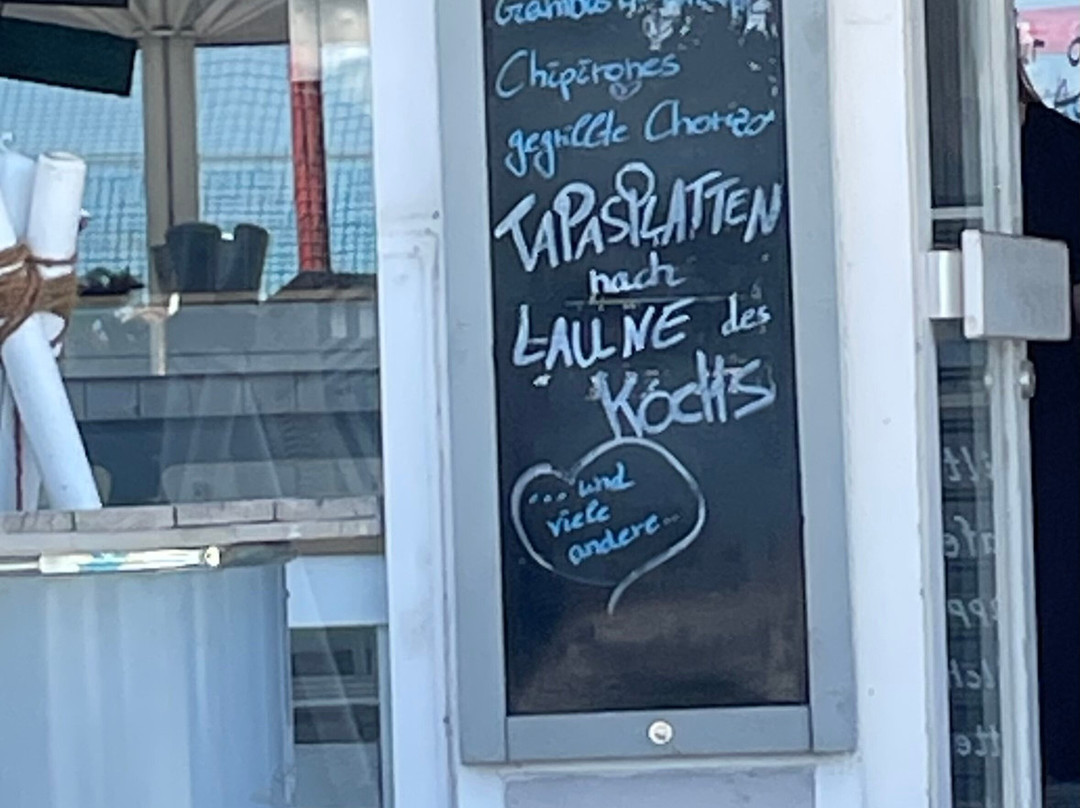 Gambas
Chipirones
gegrillte Chorizo
TAPASPLATTEN
nach
LAUNE des
KOCHS
... und
viele
andere...